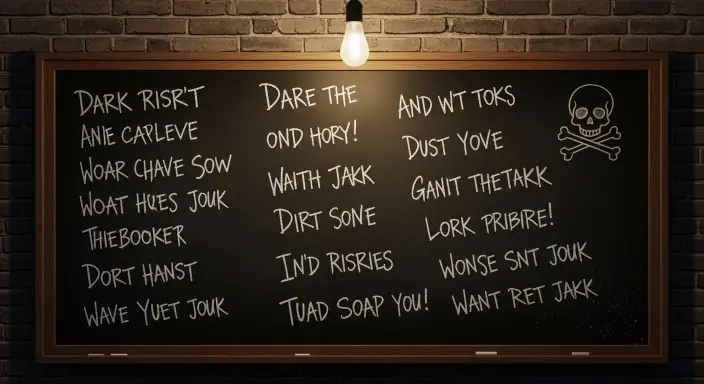 DARK RISR'T
ANIE CAPLEVE
WOAR CHAVE SOW
WOAT HUES JOUK
THIEBOOKER
DORT HANST
WAVE YUET JOUK
DARE THE
OND HORY!
WAITH JAKK
DIRT SONE
IN'D RISRIES
TUAD SOAP YOU!
AND WT TOKS
DUST YOVE
GANIT THETAKK
LORK PRIBIRE!
WONSE SNT JOUK
WANT RET JAKK